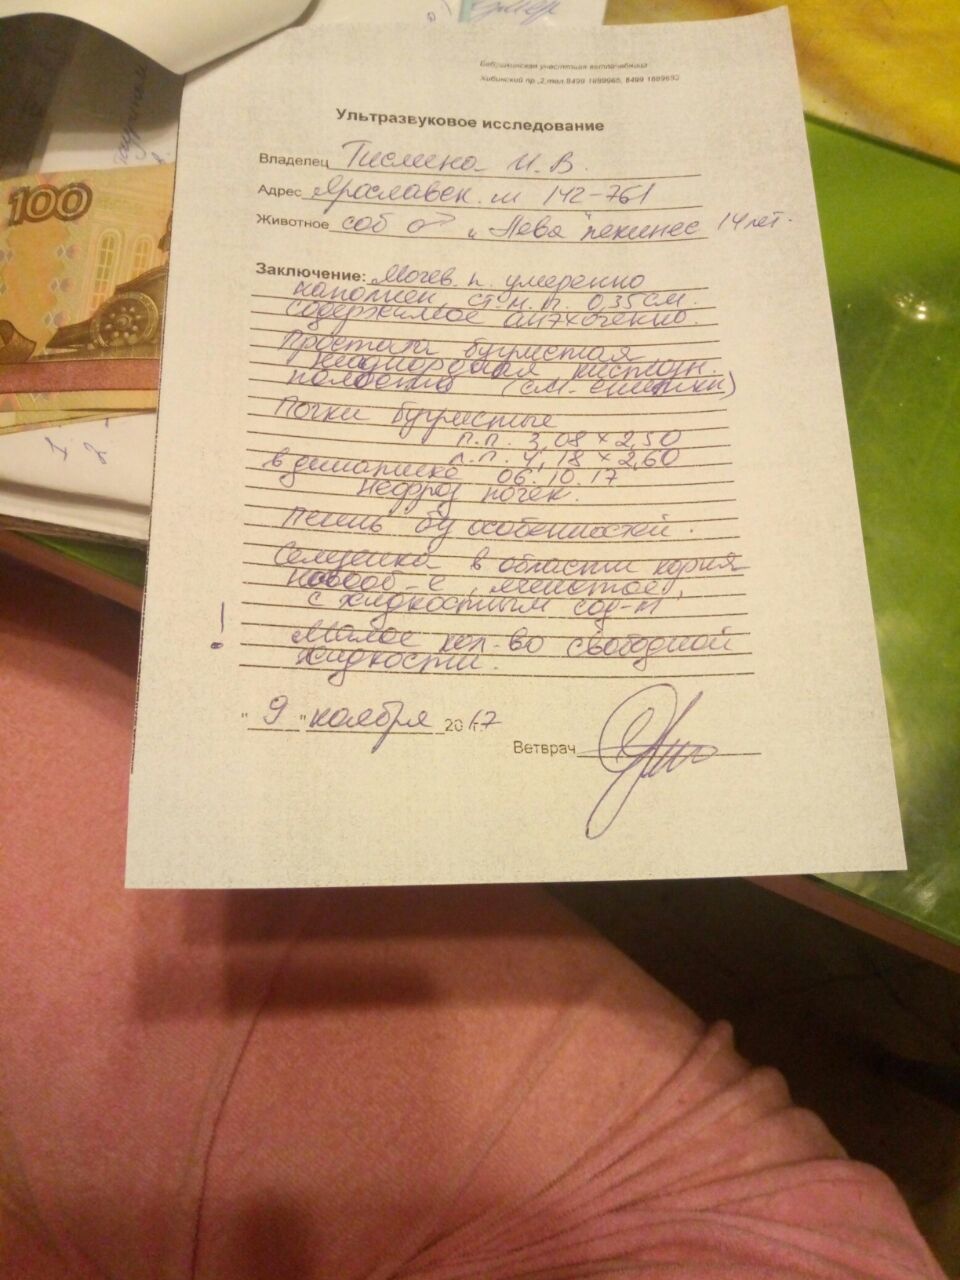 Бабушкинская участковая ветлечебница
Хибинский пр.,2,тел.8499 1889968, 8499
Ультразвуковое исследование
Владелец И. В.
Адрес Ярославск. ш 142-761
Животное соб ♂ "Лева" пекинес 14 лет.
Заключение: Мочев. п. умеренно
наполнен, ст. м. п. 0,35 см.
содержимое анэхогенно.
Простата бугристая
неоднородная кистозн.
полости (см. снимки)
Почки бугристые
п.п. 3,08 × 2,50
л.п. 4,18 × 2,60
в динамике 06.10.17
нефроз почек.
Печень б/у особенностей.
Селезенка в области корня
новооб-е, ячеистое,
с жидкостным сод-м
! Малое кол-во свободной
жидкости.
" 9 " ноября 2017 г.
Ветврач
100